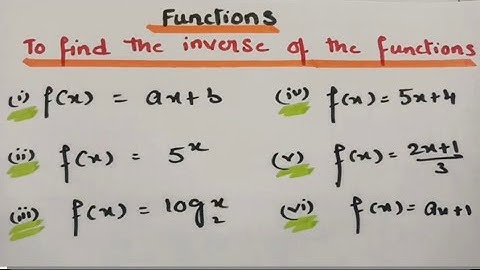 Functions
To find the inverse of the functions
(i) f(x) = ax+b
(ii) f(x) = 5ˣ
(iii) f(x) = log₂ˣ
(iv) f(x) = 5x+4
(v) f(x) = 2x+1/3
(vi) f(x) = ax+1